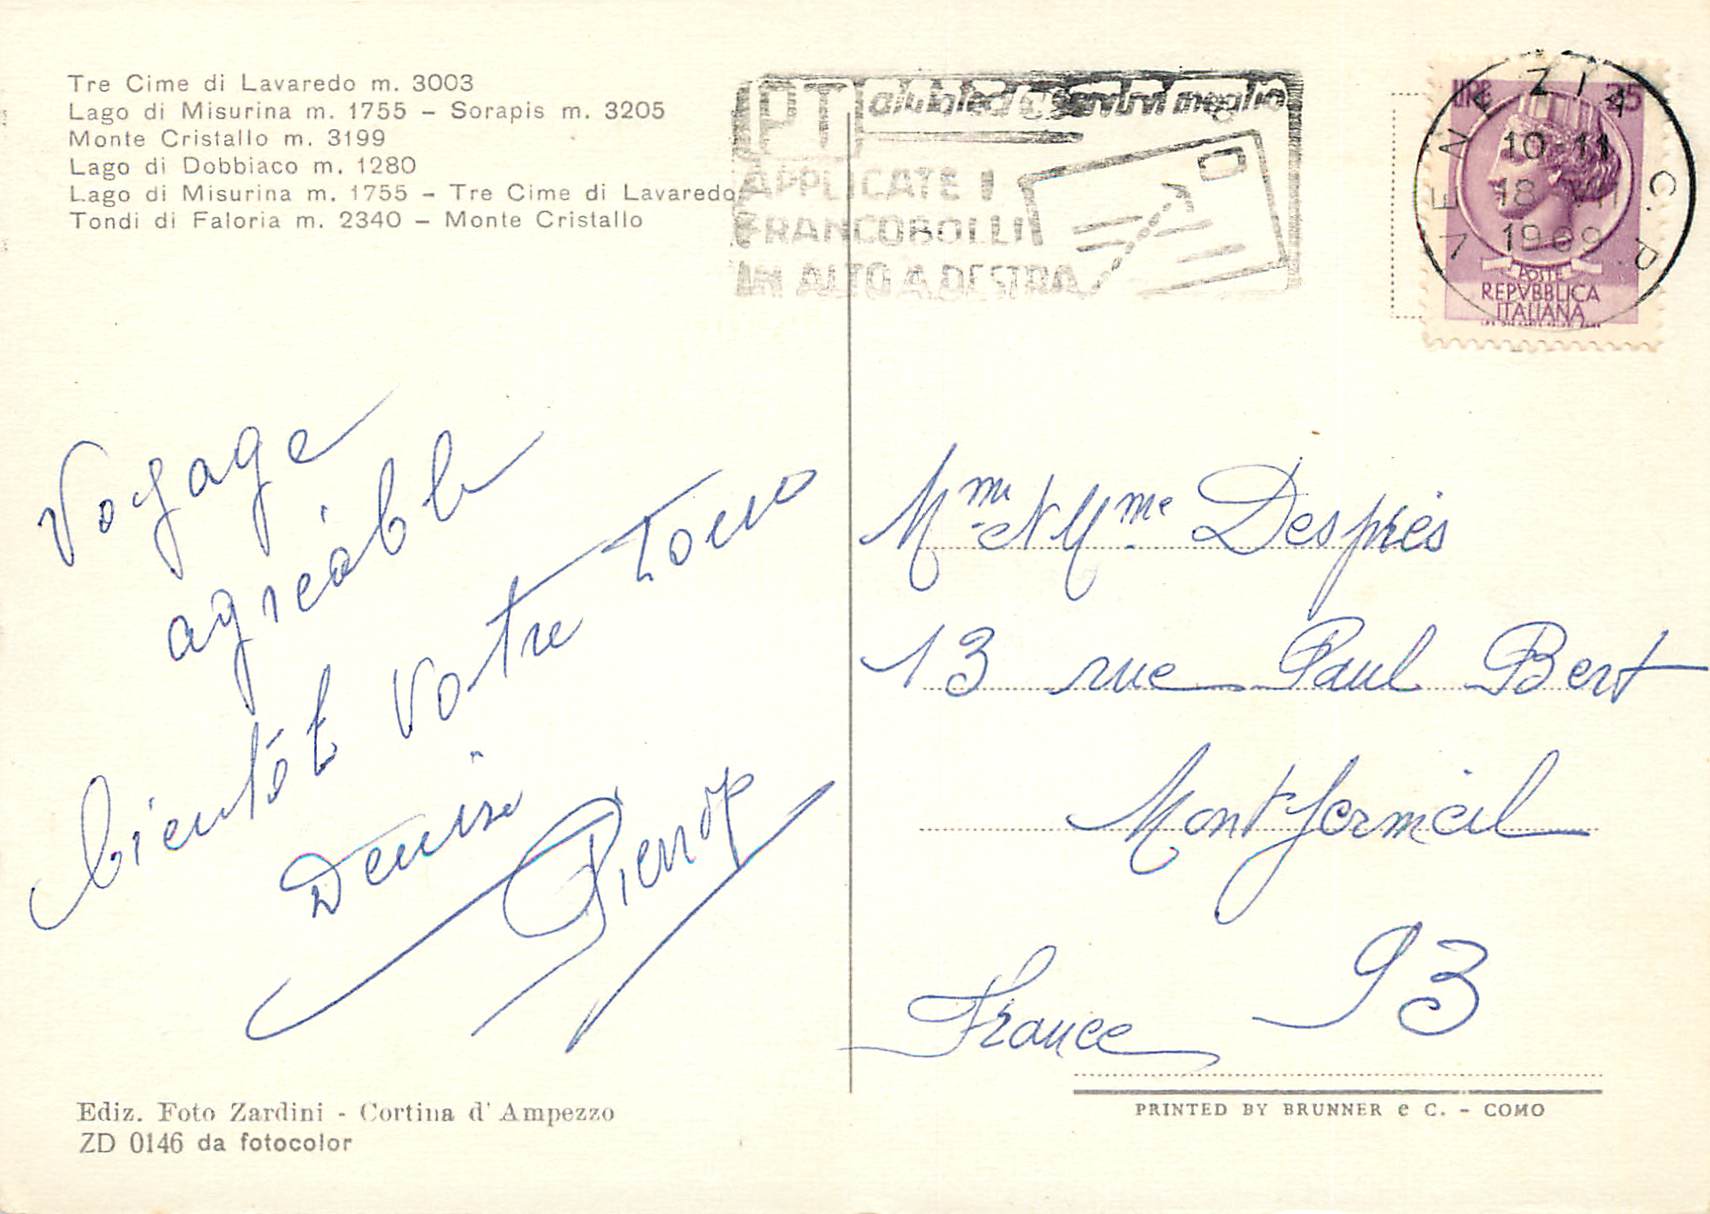 Tre Cime di Lavaredo m. 3003
Lago di Misurina m. 1755 – Sorapis m. 3205
Monte Cristallo m. 3199
Lago di Dobbiaco m. 1280
Lago di Misurina m. 1755 – Tre Cime di Lavaredo
Tondi di Faloria m. 2340 – Monte Cristallo
PT aiutateci a servirvi meglio
APPLICATE I
FRANCOBOLLI
IN ALTO A DESTRA
VENEZIA C.P.
10-11
18 VII
1969
LIRE 25
POSTE
REPVBBLICA
ITALIANA
Voyage
agréable
bientôt votre tour
Denise
Pierrot
Mme Després
13 rue Paul Bert
Montfermeil
93
France
Ediz. Foto Zardini - Cortina d'Ampezzo
ZD 0146 da fotocolor
PRINTED BY BRUNNER e C. – COMO